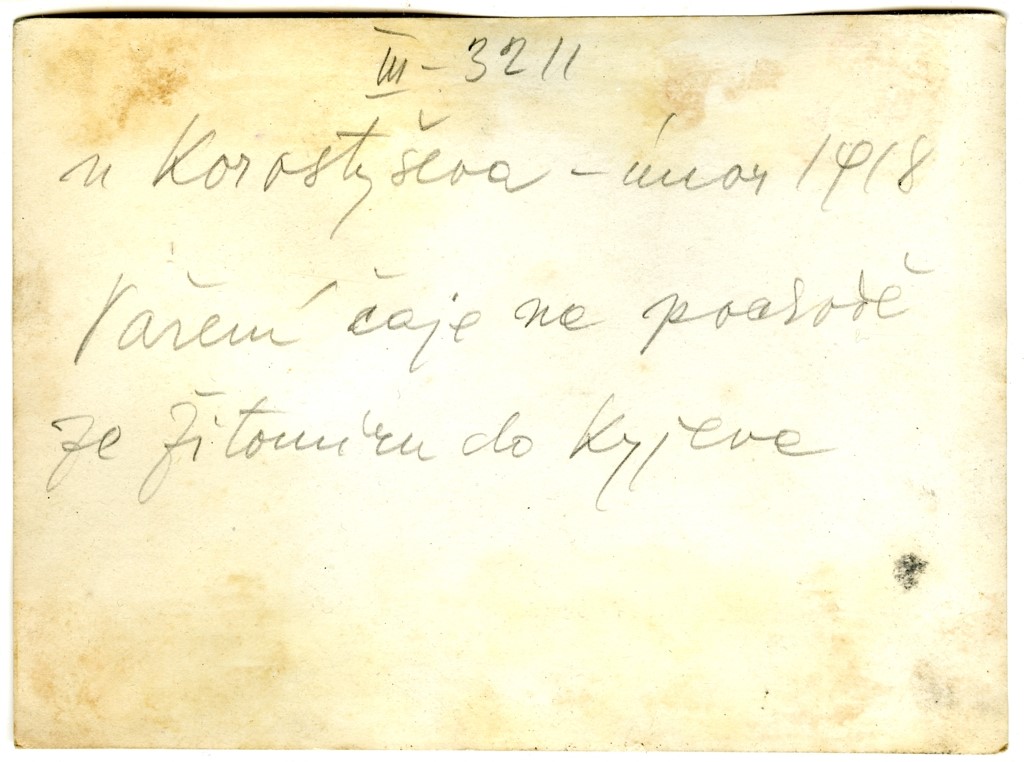 III - 3211
u Korostyševa - únor 1918
Vaření čaje na pochodě
ze Žitomíru do Kyjeva